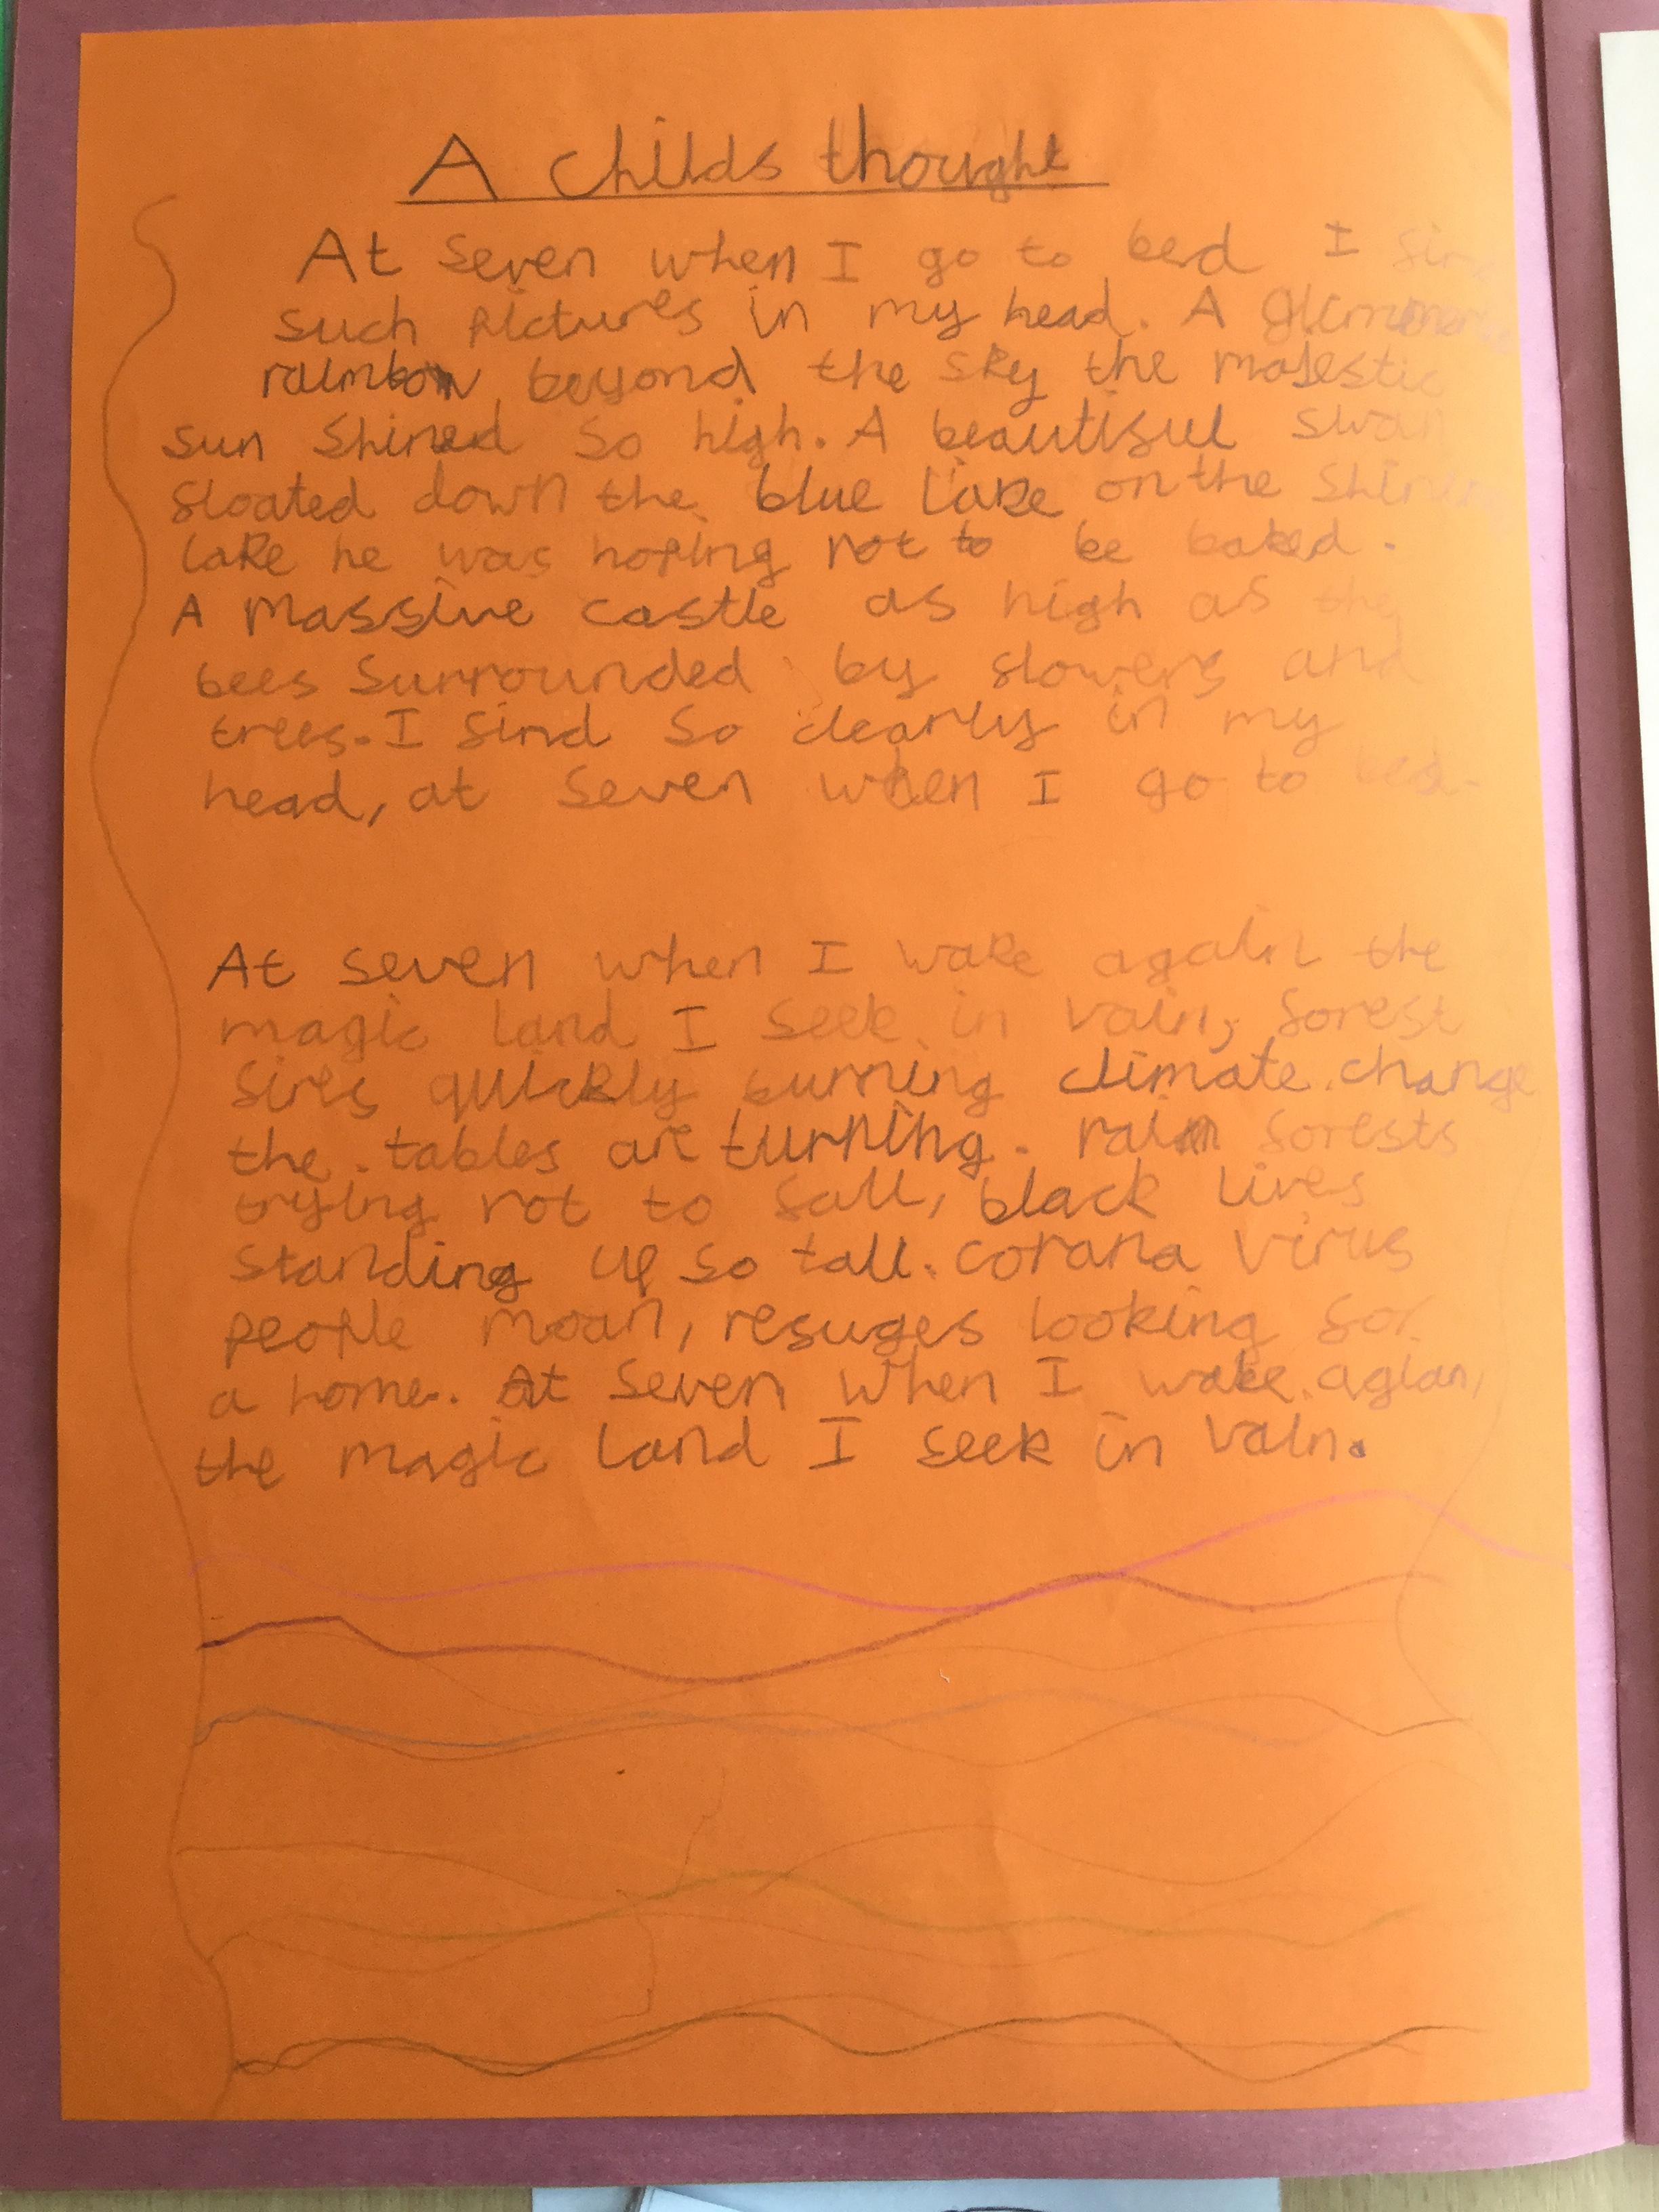 A childs thought
At seven when I go to bed I find
such pictures in my head. A glimmering
rainbow beyond the sky the majestic
sun shined so high. A beautiful swan
floated down the blue lake on the shining
lake he was hoping not to be baked.
A massive castle as high as the
bees surrounded by flowers and
trees. I find so clearly in my
head, at seven when I go to bed.
At seven when I wake again the
magic land I seek in vain, forest
fires quickly burning climate change
the tables are turning. rain forests
trying not to fall, black lives
standing up so tall. corana virus
people moan, refuges looking for
a home. At seven when I wake agian,
the magic land I seek in vain.